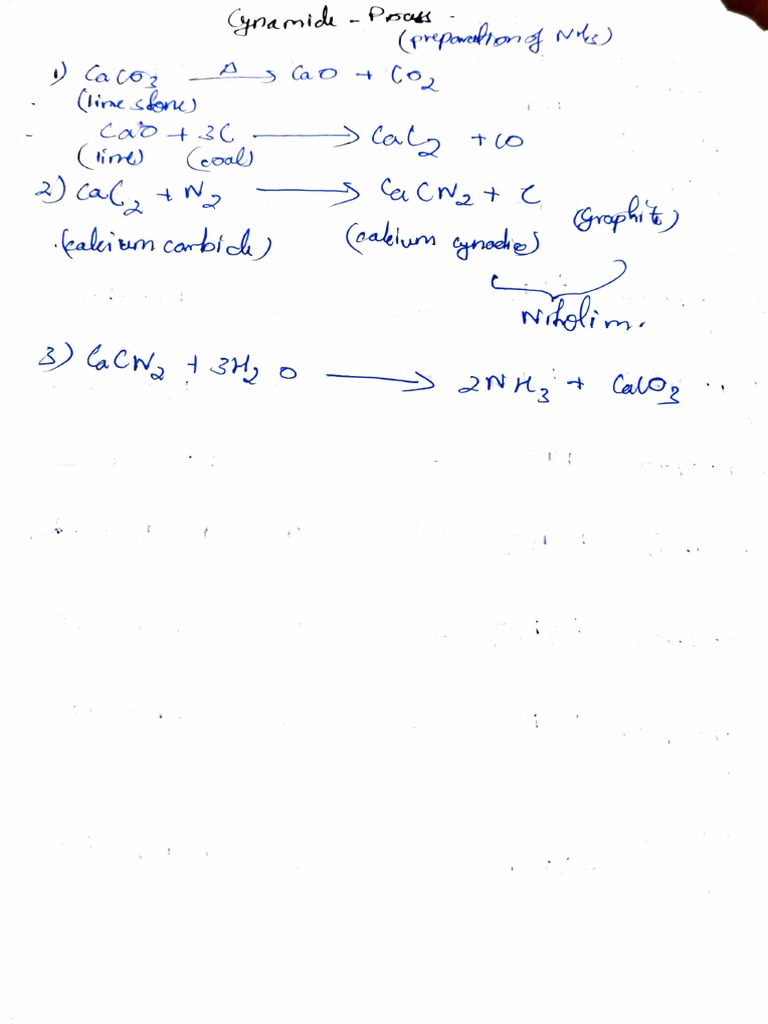 Cynamide - Process.
(preparation of NH3)
1) CaCO3 —Δ→ CaO + CO2
(lime stone)
CaO + 3C → CaC2 + CO
(lime) (coal)
2) CaC2 + N2 → CaCN2 + C (graphite)
(calcium carbide) (calcium)
Nitrolim.
3) CaCN2 + 3H2O → 2NH3 + CaCO3